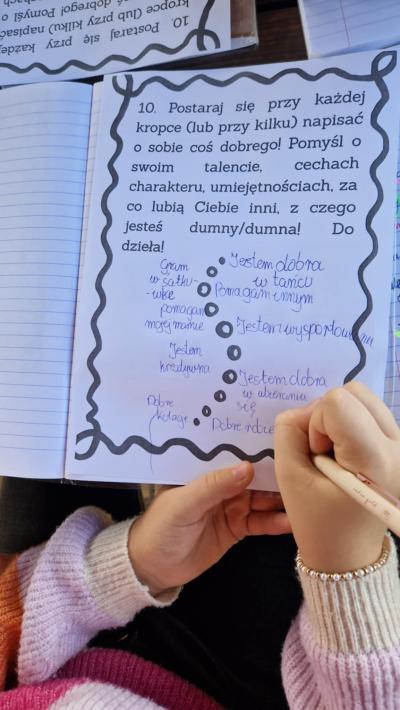 10. Postaraj się przy każdej
kropce (lub przy kilku) napisać
10. Postaraj się przy każdej
kropce (lub przy kilku) napisać
o sobie coś dobrego! Pomyśl o
swoim talencie, cechach
charakteru, umiejętnościach, za
co lubią Ciebie inni, z czego
jesteś dumny/dumna! Do
dzieła!
Jestem dobra
w tańcu
Gram
w siatków-
-wkę
Pomagam innym
pomagam
mojej mamie
Jestem wysportowana
Jestem
kreatywna
Jestem dobra
w ubieraniu
się
Dobre
kolage
Dobre